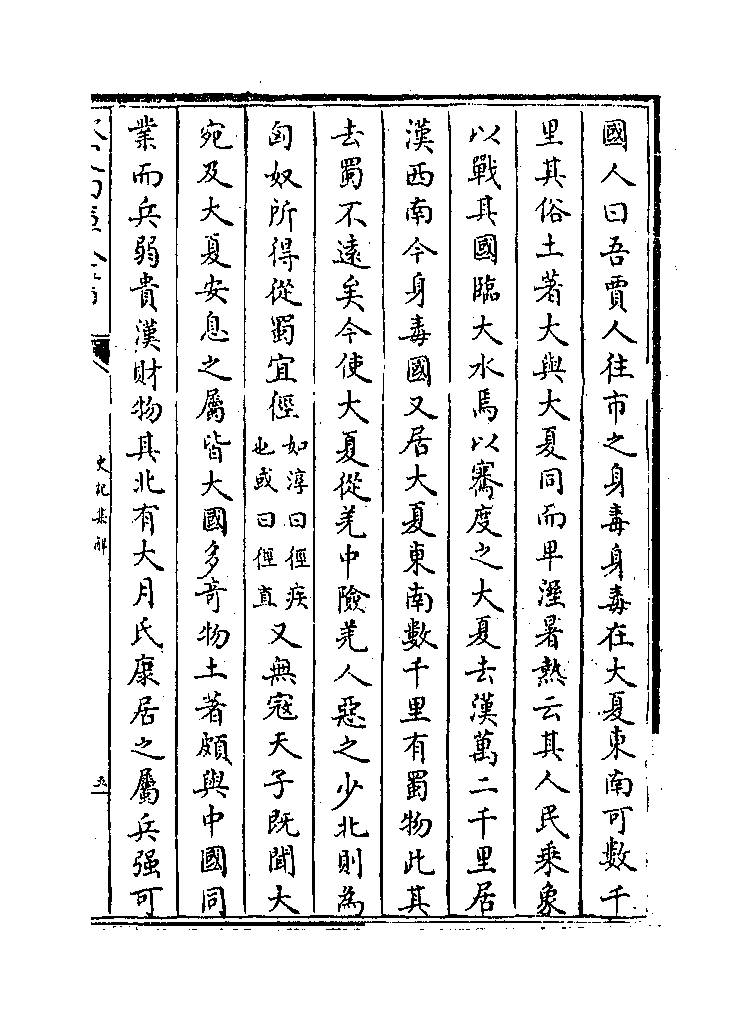 國人曰吾賈人往市之身毒身毒在大夏東南可數千
里其俗土著大與大夏同而卑溼暑熱云其人民乘象
以戰其國臨大水焉以騫度之大夏去漢萬二千里居
漢西南今身毒國又居大夏東南數千里有蜀物此其
去蜀不遠矣今使大夏從羌中險羌人惡之少北則為
匈奴所得從蜀宜徑如淳曰徑疾也或曰徑直又無寇天子既聞大
宛及大夏安息之屬皆大國多奇物土著頗與中國同
業而兵弱貴漢財物其北有大月氏康居之屬兵强可
史記集解
五